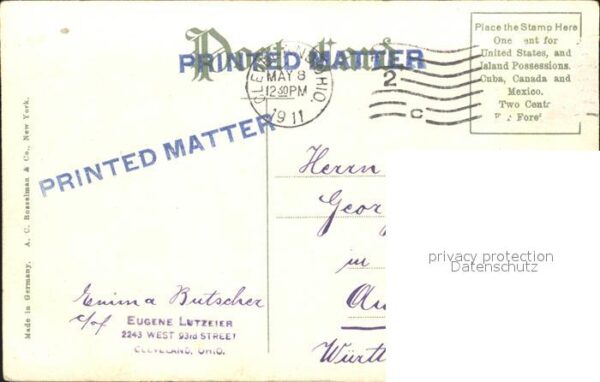 Post Card
PRINTED MATTER
CLEVELAND, OHIO.
MAY 8
12 30 PM
1911
2
C
Place the Stamp Here
One ent for
United States, and
Island Possessions,
Cuba, Canada and
Mexico.
Two Cent
Foreⁱ
PRINTED MATTER
Made in Germany. A. C. Bosselman & Co., New York.
Herrn
Geor
in
Württ
privacy protection
Datenschutz
Emma Butscher
c/of EUGENE LUTZEIER
2243 WEST 93rd STREET
CLEVELAND, OHIO.